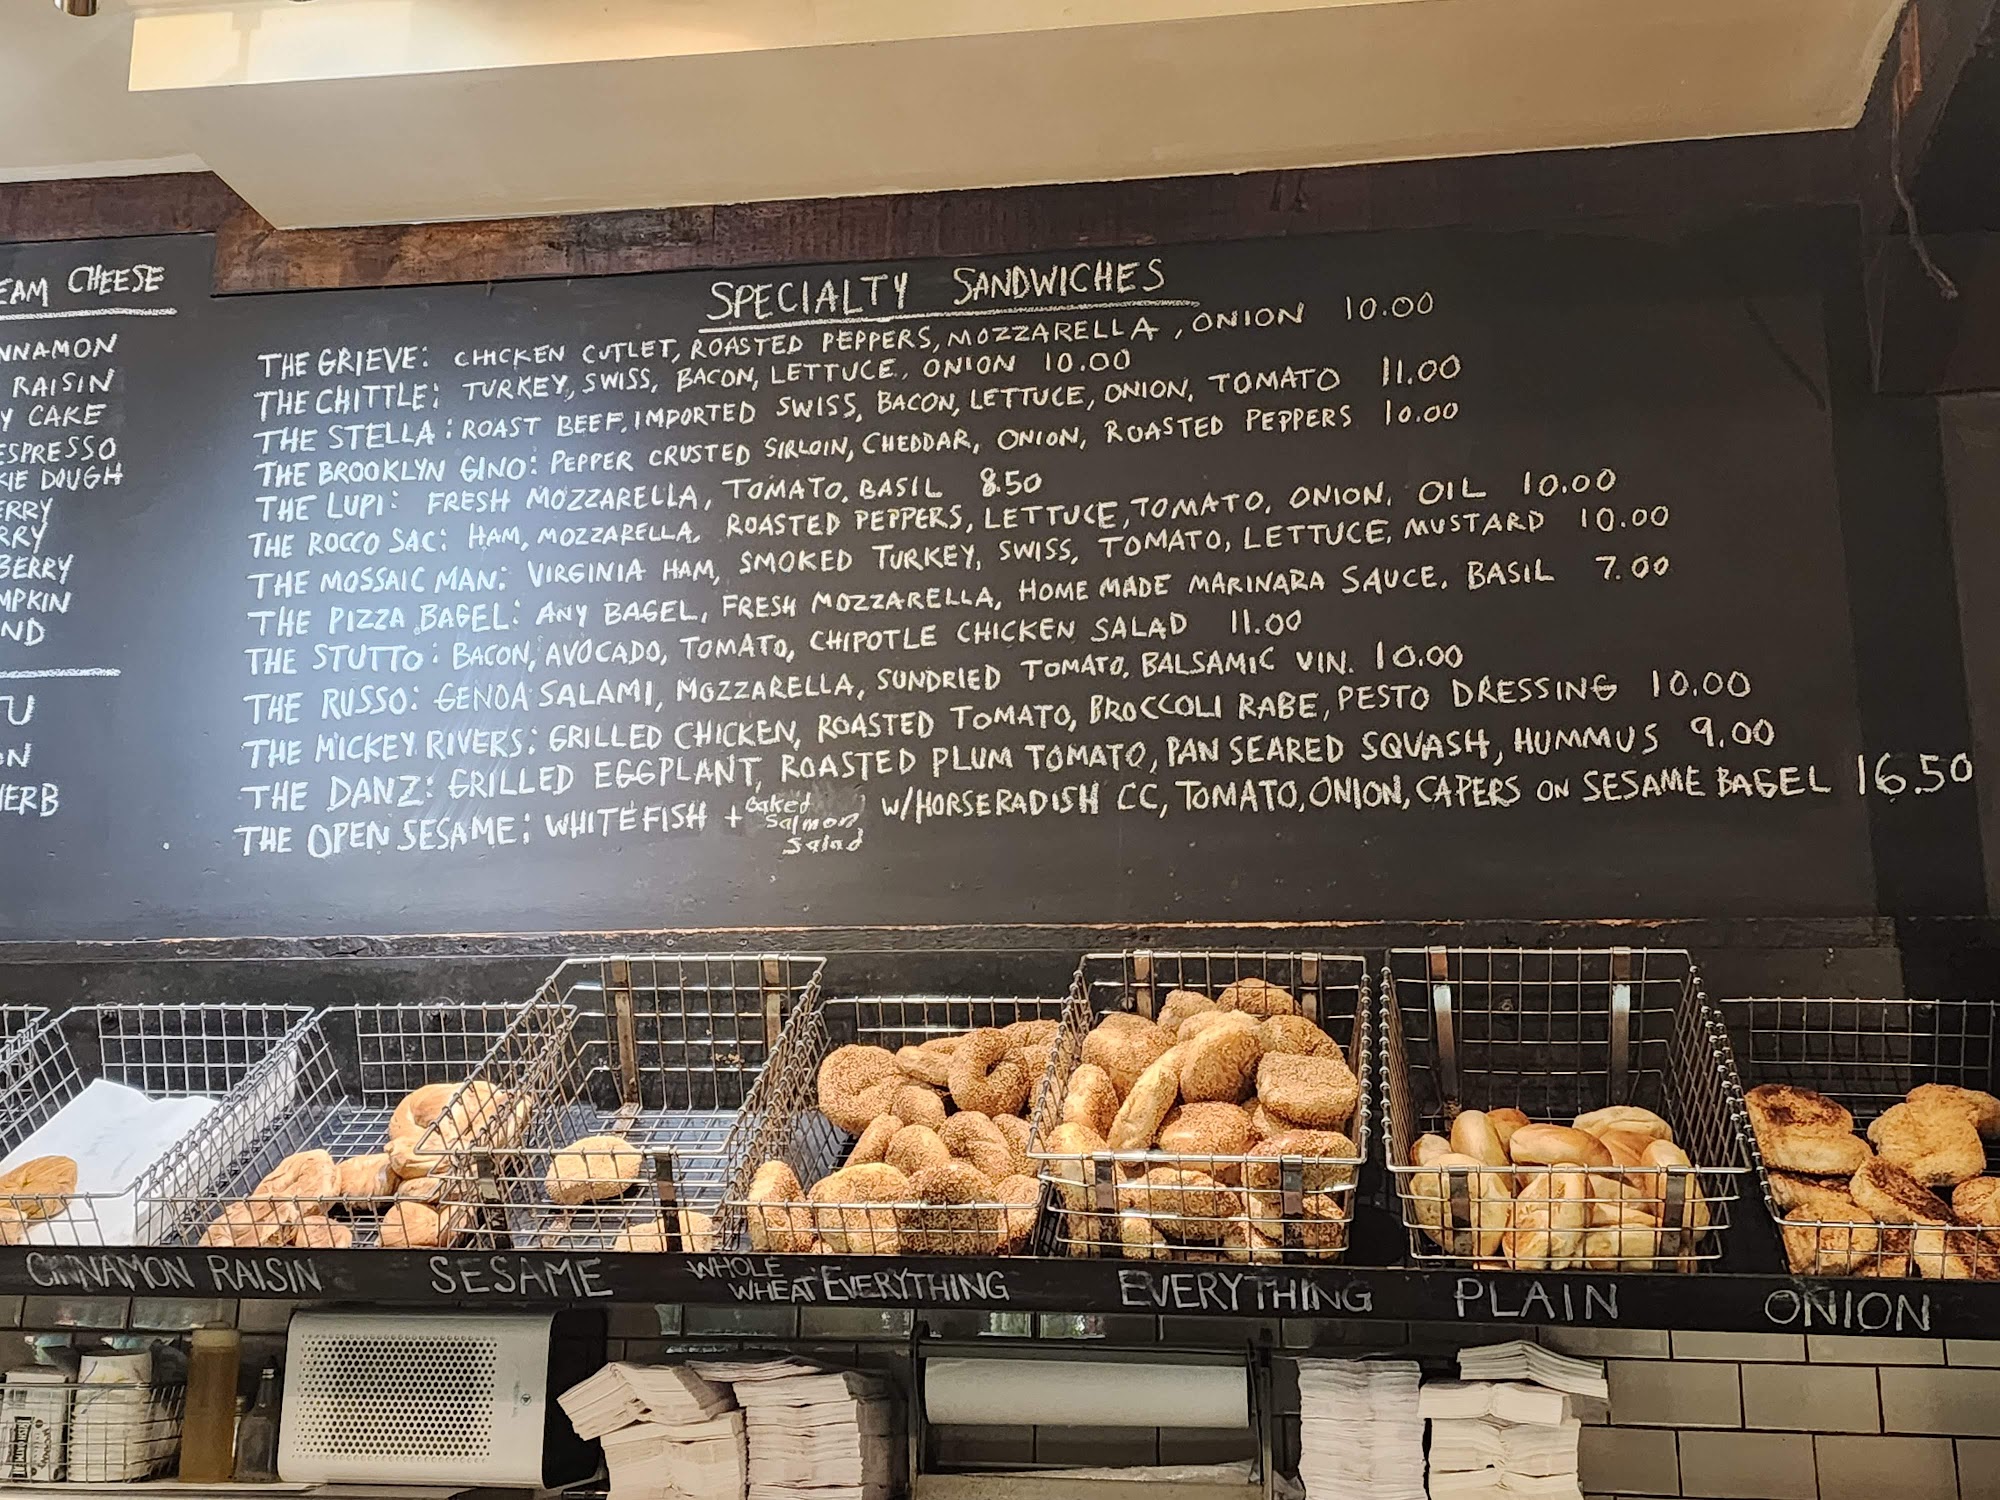 EAM CHEESE
NNAMON
RAISIN
Y CAKE
ESPRESSO
KIE DOUGH
ERRY
RRY
BERRY
MPKIN
ND
U
ON
HERB
SPECIALTY SANDWICHES
THE GRIEVE: CHICKEN CUTLET, ROASTED PEPPERS, MOZZARELLA, ONION 10.00
THE CHITTLE: TURKEY, SWISS, BACON, LETTUCE, ONION 10.00
THE STELLA: ROAST BEEF, IMPORTED SWISS, BACON, LETTUCE, ONION, TOMATO 11.00
THE BROOKLYN GINO: PEPPER CRUSTED SIRLOIN, CHEDDAR, ONION, ROASTED PEPPERS 10.00
THE LUPI: FRESH MOZZARELLA, TOMATO, BASIL 8.50
THE ROCCO SAC: HAM, MOZZARELLA, ROASTED PEPPERS, LETTUCE, TOMATO, ONION, OIL 10.00
THE MOSSAIC MAN: VIRGINIA HAM, SMOKED TURKEY, SWISS, TOMATO, LETTUCE, MUSTARD 10.00
THE PIZZA BAGEL: ANY BAGEL, FRESH MOZZARELLA, HOME MADE MARINARA SAUCE, BASIL 7.00
THE STUTTO: BACON, AVOCADO, TOMATO, CHIPOTLE CHICKEN SALAD 11.00
THE RUSSO: GENOA SALAMI, MOZZARELLA, SUNDRIED TOMATO, BALSAMIC VIN. 10.00
THE MICKEY RIVERS: GRILLED CHICKEN, ROASTED TOMATO, BROCCOLI RABE, PESTO DRESSING 10.00
THE DANZ: GRILLED EGGPLANT, ROASTED PLUM TOMATO, PAN SEARED SQUASH, HUMMUS 9.00
THE OPEN SESAME: WHITEFISH + Baked Salmon Salad W/HORSERADISH CC, TOMATO, ONION, CAPERS ON SESAME BAGEL 16.50
CINNAMON RAISIN
SESAME
WHOLE WHEAT EVERYTHING
EVERYTHING
PLAIN
ONION